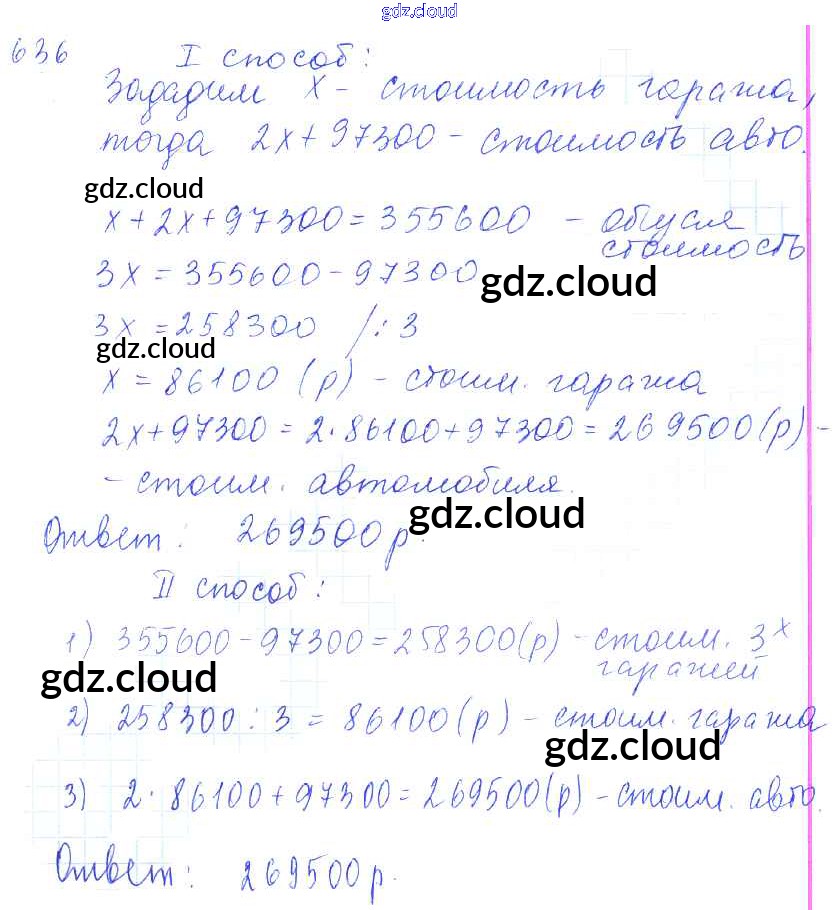 gdz.cloud
636 I способ:
Зададим x - стоимость гаража,
тогда 2x+97300 - стоимость авто.
gdz.cloud
x+2x+97300=355600 - общая
стоимость
3x = 355600-97300
gdz.cloud
3x = 258300 /:3
gdz.cloud
x = 86100 (р) - стоим. гаража
2x+97300 = 2·86100+97300=269500(р) -
- стоим. автомобиля.
gdz.cloud
Ответ: 269500 р.
II способ:
1) 355600-97300=258300(р) - стоим. 3х
гаражей
gdz.cloud
2) 258300:3 = 86100(р) - стоим. гаража
gdz.cloud
3) 2·86100+97300=269500(р) - стоим. авто.
Ответ: 269500 р.